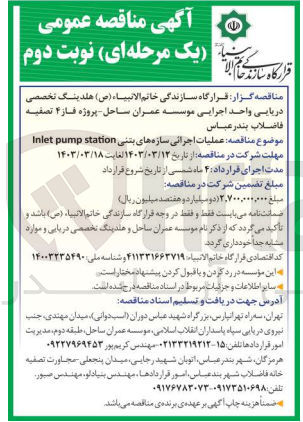 قرارگاه سازندگی خاتم الانبیاء
آگهی مناقصه عمومی
(یک مرحله‌ای) نوبت دوم
مناقصه گزار: قرارگاه سازندگی خاتم‌الانبیاء (ص) هلدینگ تخصصی
دریایی واحد اجرایی موسسه عمران ساحل-پروژه فاز۴ تصفیه
فاضلاب بندرعباس
موضوع مناقصه: عملیات اجرائی سازه‌های بتنی Inlet pump station
مهلت شرکت در مناقصه: از تاریخ ۱۴۰۳/۰۳/۱۲ لغایت ۱۴۰۳/۰۳/۱۸
مدت اجرای قرارداد: ۴ ماه شمسی از تاریخ شروع قرارداد
مبلغ تضمین شرکت در مناقصه:
مبلغ ۲,۷۰۰,۰۰۰,۰۰۰ (دو میلیارد و هفتصد میلیون ریال)
ضمانتنامه می‌بایست فقط و فقط در وجه قرارگاه سازندگی خاتم‌الانبیاء (ص) باشد و
تأکید می‌گردد که از ذکر نام موسسه عمران ساحل و هلدینگ تخصصی دریایی و موارد
مشابه جدا خودداری گردد.
کد اقتصادی قرارگاه خاتم الانبیاء: ۴۱۱۳۳۱۶۶۳۷۱۹ و شناسه ملی: ۱۴۰۰۳۲۳۵۴۹۰
این موسسه در رد کردن و یا قبول کردن پیشنهاد مختار است.
سایر اطلاعات و جزئیات مربوط در اسناد مناقصه درج شده است.
آدرس جهت دریافت و تسلیم اسناد مناقصه:
تهران، سه راه تهرانپارس، بزرگراه شهید عباس دوران (اسبدوانی)، میدان مهتدی، جنب
نیروی دریایی سپاه پاسداران انقلاب اسلامی، موسسه عمران ساحل، طبقه دوم، مدیریت
امور قراردادها تلفن: ۱۵-۰۲۱۳۳۲۱۹۲۱۲ -مهندس کریم پور ۰۹۲۲۷۹۶۹۴۵۳
هرمزگان، شهر بندرعباس، اتوبان شهید رجایی، میدان پنجعلی-مجاورت تصفیه
خانه فاضلاب شهر بندرعباس، امور قراردادها، مهندس بنیادلو، مهندس صبور.
تلفن: ۰۹۱۷۳۵۱۰۶۹۸-۰۹۱۷۶۷۸۳۰۷۳
ضمناً هزینه چاپ آگهی بر عهده‌ی برنده‌ی مناقصه می‌باشد.